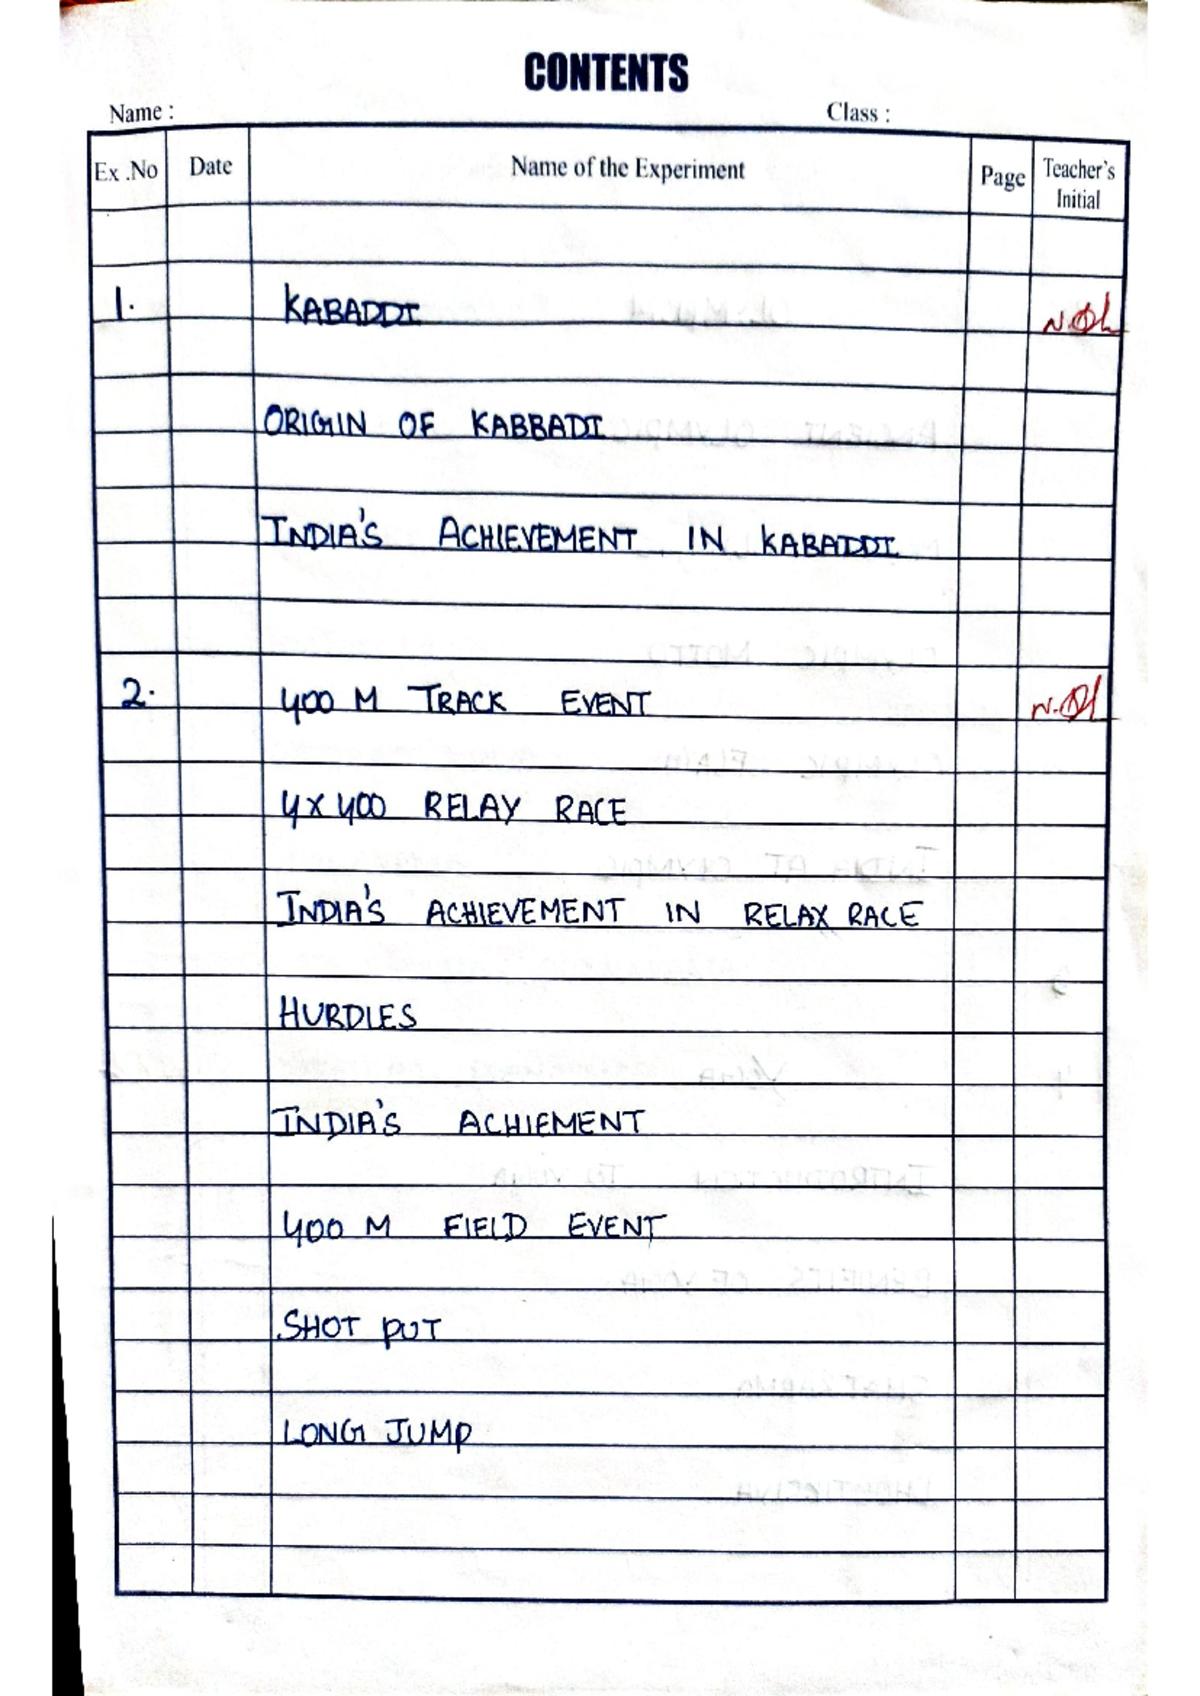 CONTENTS
Name :
Class :
Ex .No Date Name of the Experiment Page Teacher's Initial
1. KABADDI
ORIGIN OF KABBADI
INDIA'S ACHIEVEMENT IN KABADDI
2. 400 M TRACK EVENT
4x400 RELAY RACE
INDIA'S ACHIEVEMENT IN RELAX RACE
HURDLES
INDIA'S ACHIEMENT
400 M FIELD EVENT
SHOT PUT
LONG JUMP